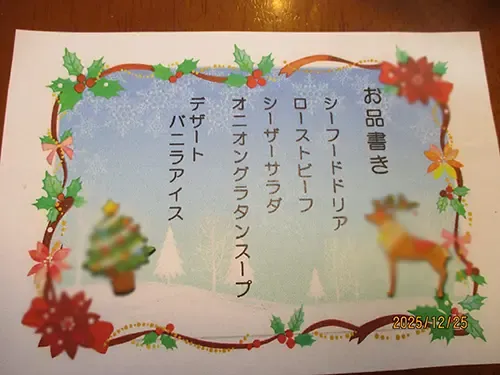 お品書き
シーフードドリア
ローストビーフ
シーザーサラダ
オニオングラタンスープ
デザート
バニラアイス
2025/12/25